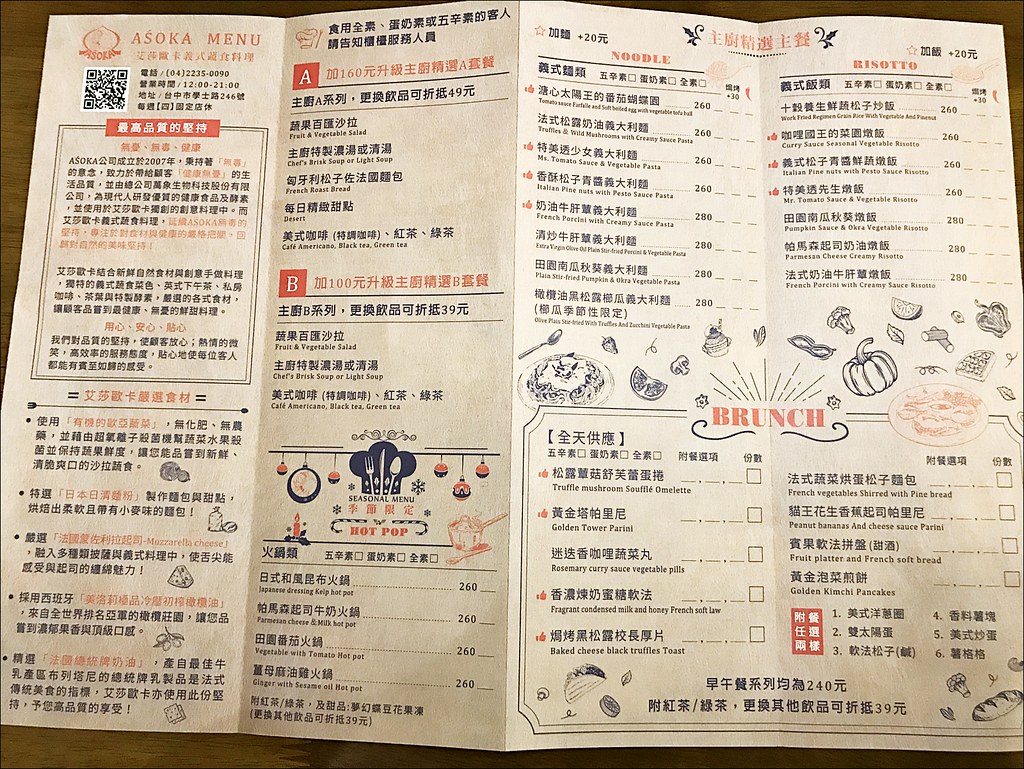 AŚOKA
AŚOKA MENU
艾莎歐卡義式蔬食料理
電話 / (04)2235-0090
營業時間 / 12:00-21:00
地址 / 台中市學士路246號
每週【四】固定店休
最高品質的堅持
無憂、無毒、健康
AŚOKA公司成立於2007年，秉持著「無毒」
的意念，致力於帶給顧客「健康無憂」的生
活品質，並由總公司萬象生物科技股份有限
公司，為現代人研發優質的健康食品及酵素
，並使用於艾莎歐卡獨創的創意料理中。而
艾莎歐卡義式蔬食料理，延續AŚOKA無毒的
堅持，專注於對食材與健康的嚴格把關，回
歸對自然的美味堅持！
艾莎歐卡結合新鮮自然食材與創意手做料理
，獨特的義式蔬食菜色、英式下午茶、私房
咖啡、茶葉與特製酵素，嚴選的各式食材，
讓顧客品嘗到最健康、無憂的鮮甜料理。
用心、安心、貼心
我們對品質的堅持，使顧客放心；熱情的微
笑，高效率的服務態度，貼心地使每位客人
都能有賓至如歸的感受。
艾莎歐卡嚴選食材
• 使用「有機的歐亞蔬菜」，無化肥、無農
藥，並藉由超氧離子殺菌機幫蔬菜水果殺
菌並保持蔬果鮮度，讓您能品嘗到新鮮、
清脆爽口的沙拉蔬食。
• 特選「日本日清麵粉」製作麵包與甜點，
烘焙出柔軟且帶有小麥味的麵包！
• 嚴選「法國蒙佐利拉起司-Mozzarella cheese」
，融入多種披薩與義式料理中，使舌尖能
感受與起司的纏綿魅力！
• 採用西班牙「美洛莉極品冷壓初榨橄欖油」
，來自全世界排名亞軍的橄欖莊園，讓您品
嘗到濃郁果香與頂級口感。
• 精選「法國總統牌奶油」，產自最佳牛
乳產區布列塔尼的總統牌乳製品是法式
傳統美食的指標，艾莎歐卡亦使用此份堅
持，予您高品質的享受！
食用全素、蛋奶素或五辛素的客人
請告知櫃檯服務人員
A 加160元升級主廚精選A套餐
主廚A系列，更換飲品可折抵49元
蔬果百匯沙拉
Fruit & Vegetable Salad
主廚特製濃湯或清湯
Chef's Brisk Soup or Light Soup
匈牙利松子佐法國麵包
French Roast Bread
每日精緻甜點
Desert
美式咖啡 (特調咖啡)、紅茶、綠茶
Café Americano, Black tea, Green tea
B 加100元升級主廚精選B套餐
主廚B系列，更換飲品可折抵39元
蔬果百匯沙拉
Fruit & Vegetable Salad
主廚特製濃湯或清湯
Chef's Brisk Soup or Light Soup
美式咖啡 (特調咖啡)、紅茶、綠茶
Café Americano, Black tea, Green tea
SEASONAL MENU
季節限定
HOT POP
火鍋類 五辛素□ 蛋奶素□ 全素□
日式和風昆布火鍋 260
Japanese dressing Kelp hot pot
帕馬森起司牛奶火鍋 260
Parmesan cheese & Milk hot pot
田園番茄火鍋 260
Vegetable with Tomato Hot pot
薑母麻油雞火鍋 260
Ginger with Sesame oil Hot pot
附紅茶/綠茶，及甜品:夢幻蝶豆花果凍
(更換其他飲品可折抵39元)
主廚精選主餐
☆加麵 +20元
NOODLE
義式麵類 五辛素□ 蛋奶素□ 全素□ 焗烤 +30
溏心太陽王的番茄蝴蝶園 260
Tomato sauce Farfalle and Soft boiled egg with vegetable tofu ball
法式松露奶油義大利麵 260
Truffles & Wild Mushrooms with Creamy Sauce Pasta
特美透少女義大利麵 260
Ms. Tomato Sauce & Vegetable Pasta
香酥松子青醬義大利麵 260
Italian Pine nuts with Pesto Sauce Pasta
奶油牛肝蕈義大利麵 280
French Porcini with Creamy Sauce Pasta
清炒牛肝蕈義大利麵 280
Extra Virgin Olive Oil Plain Stir-fried Porcini & Vegetable Pasta
田園南瓜秋葵義大利麵 280
Plain Stir-fried Pumpkin & Okra Vegetable Pasta
橄欖油黑松露櫛瓜義大利麵 280
(櫛瓜季節性限定)
Olive Plain Stir-fried With Truffles And Zucchini Vegetable Pasta
☆加飯 +20元
RISOTTO
義式飯類 五辛素□ 蛋奶素□ 全素□ 焗烤 +30
十穀養生鮮蔬松子炒飯 260
Work Fried Regimen Grain Rice With Vegetable And Pinenut
咖哩國王的菜園燉飯 260
Curry Sauce Seasonal Vegetable Risotto
義式松子青醬鮮蔬燉飯 260
Italian Pine nuts with Pesto Sauce Risotto
特美透先生燉飯 260
Mr. Tomato Sauce & Vegetable Risotto
田園南瓜秋葵燉飯 280
Pumpkin Sauce & Okra Vegetable Risotto
帕馬森起司奶油燉飯 280
Parmesan Cheese Creamy Risotto
法式奶油牛肝蕈燉飯 280
French Porcini with Creamy Sauce Risotto
BRUNCH
【全天供應】
五辛素□ 蛋奶素□ 全素□ 附餐選項 份數
松露蕈菇舒芙蕾蛋捲
Truffle mushroom Soufflé Omelette
黃金塔帕里尼
Golden Tower Parini
迷迭香咖哩蔬菜丸
Rosemary curry sauce vegetable pills
香濃煉奶蜜糖軟法
Fragrant condensed milk and honey French soft law
焗烤黑松露校長厚片
Baked cheese black truffles Toast
附餐選項 份數
法式蔬菜烘蛋松子麵包
French vegetables Shirred with Pine bread
貓王花生香蕉起司帕里尼
Peanut bananas And cheese sauce Parini
賓果軟法拼盤 (甜酒)
Fruit platter and French soft bread
黃金泡菜煎餅
Golden Kimchi Pancakes
附餐任選兩樣
1. 美式洋蔥圈
2. 雙太陽蛋
3. 軟法松子(鹹)
4. 香料薯塊
5. 美式炒蛋
6. 薯格格
早午餐系列均為240元
附紅茶/綠茶，更換其他飲品可折抵39元